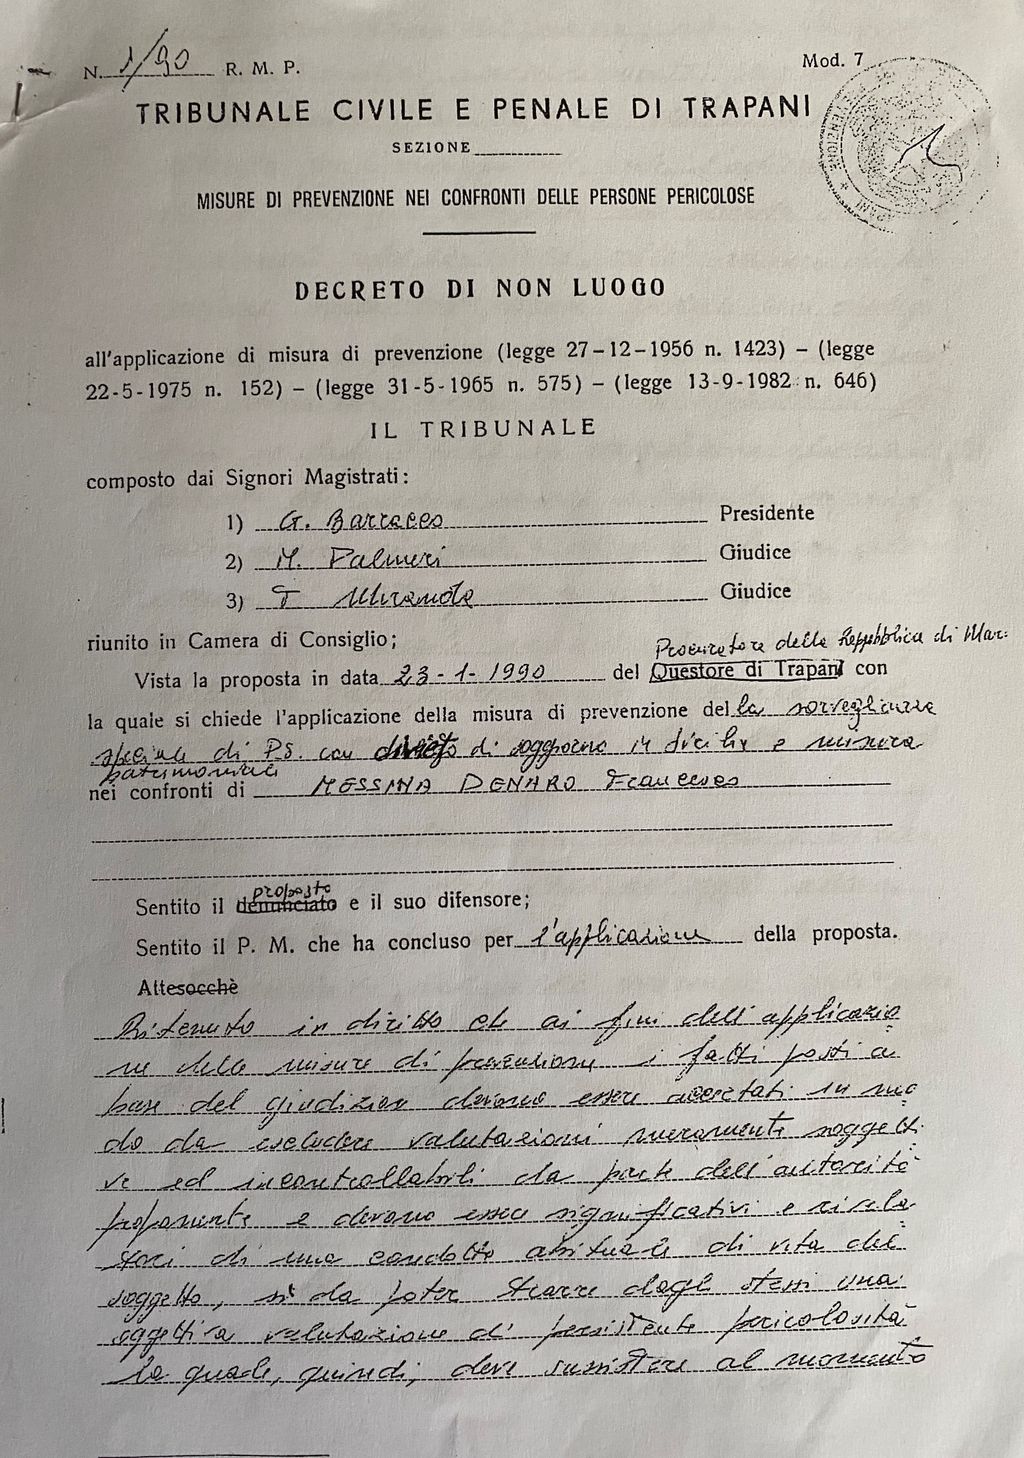 N. 1/90 R. M. P.
Mod. 7
TRIBUNALE CIVILE E PENALE DI TRAPANI
SEZIONE
MISURE DI PREVENZIONE NEI CONFRONTI DELLE PERSONE PERICOLOSE
DECRETO DI NON LUOGO
all'applicazione di misura di prevenzione (legge 27-12-1956 n. 1423) – (legge
22-5-1975 n. 152) – (legge 31-5-1965 n. 575) – (legge 13-9-1982 n. 646)
IL TRIBUNALE
composto dai Signori Magistrati:
1) G. Barraco Presidente
2) M. Palmeri Giudice
3) T Miranda Giudice
riunito in Camera di Consiglio;
Procuratore della Repubblica di Mar.
Vista la proposta in data 23-1-1990 del Questore di Trapani con
la quale si chiede l'applicazione della misura di prevenzione della sorveglianza
speciale di P.S. con divieto di soggiorno in Sicilia e misura
patrimoniale
nei confronti di MESSINA DENARO Francesco
proposto
Sentito il denunciato e il suo difensore;
Sentito il P. M. che ha concluso per l'applicazione della proposta.
Attesocchè
Ritenuto in diritto che ai fini dell'applicazio
ne delle misure di prevenzione i fatti posti a
base del giudizio devono essere accertati in mo
do da escludere valutazioni meramente soggetti
ve ed incontrollabili da parte dell'autorità
proponente e devono essere significativi e rivela
tori di una condotta abituale di vita del
soggetto, sì da poter trarre dagli stessi una
oggettiva valutazione di persistente pericolosità
la quale, quindi, deve sussistere al momento